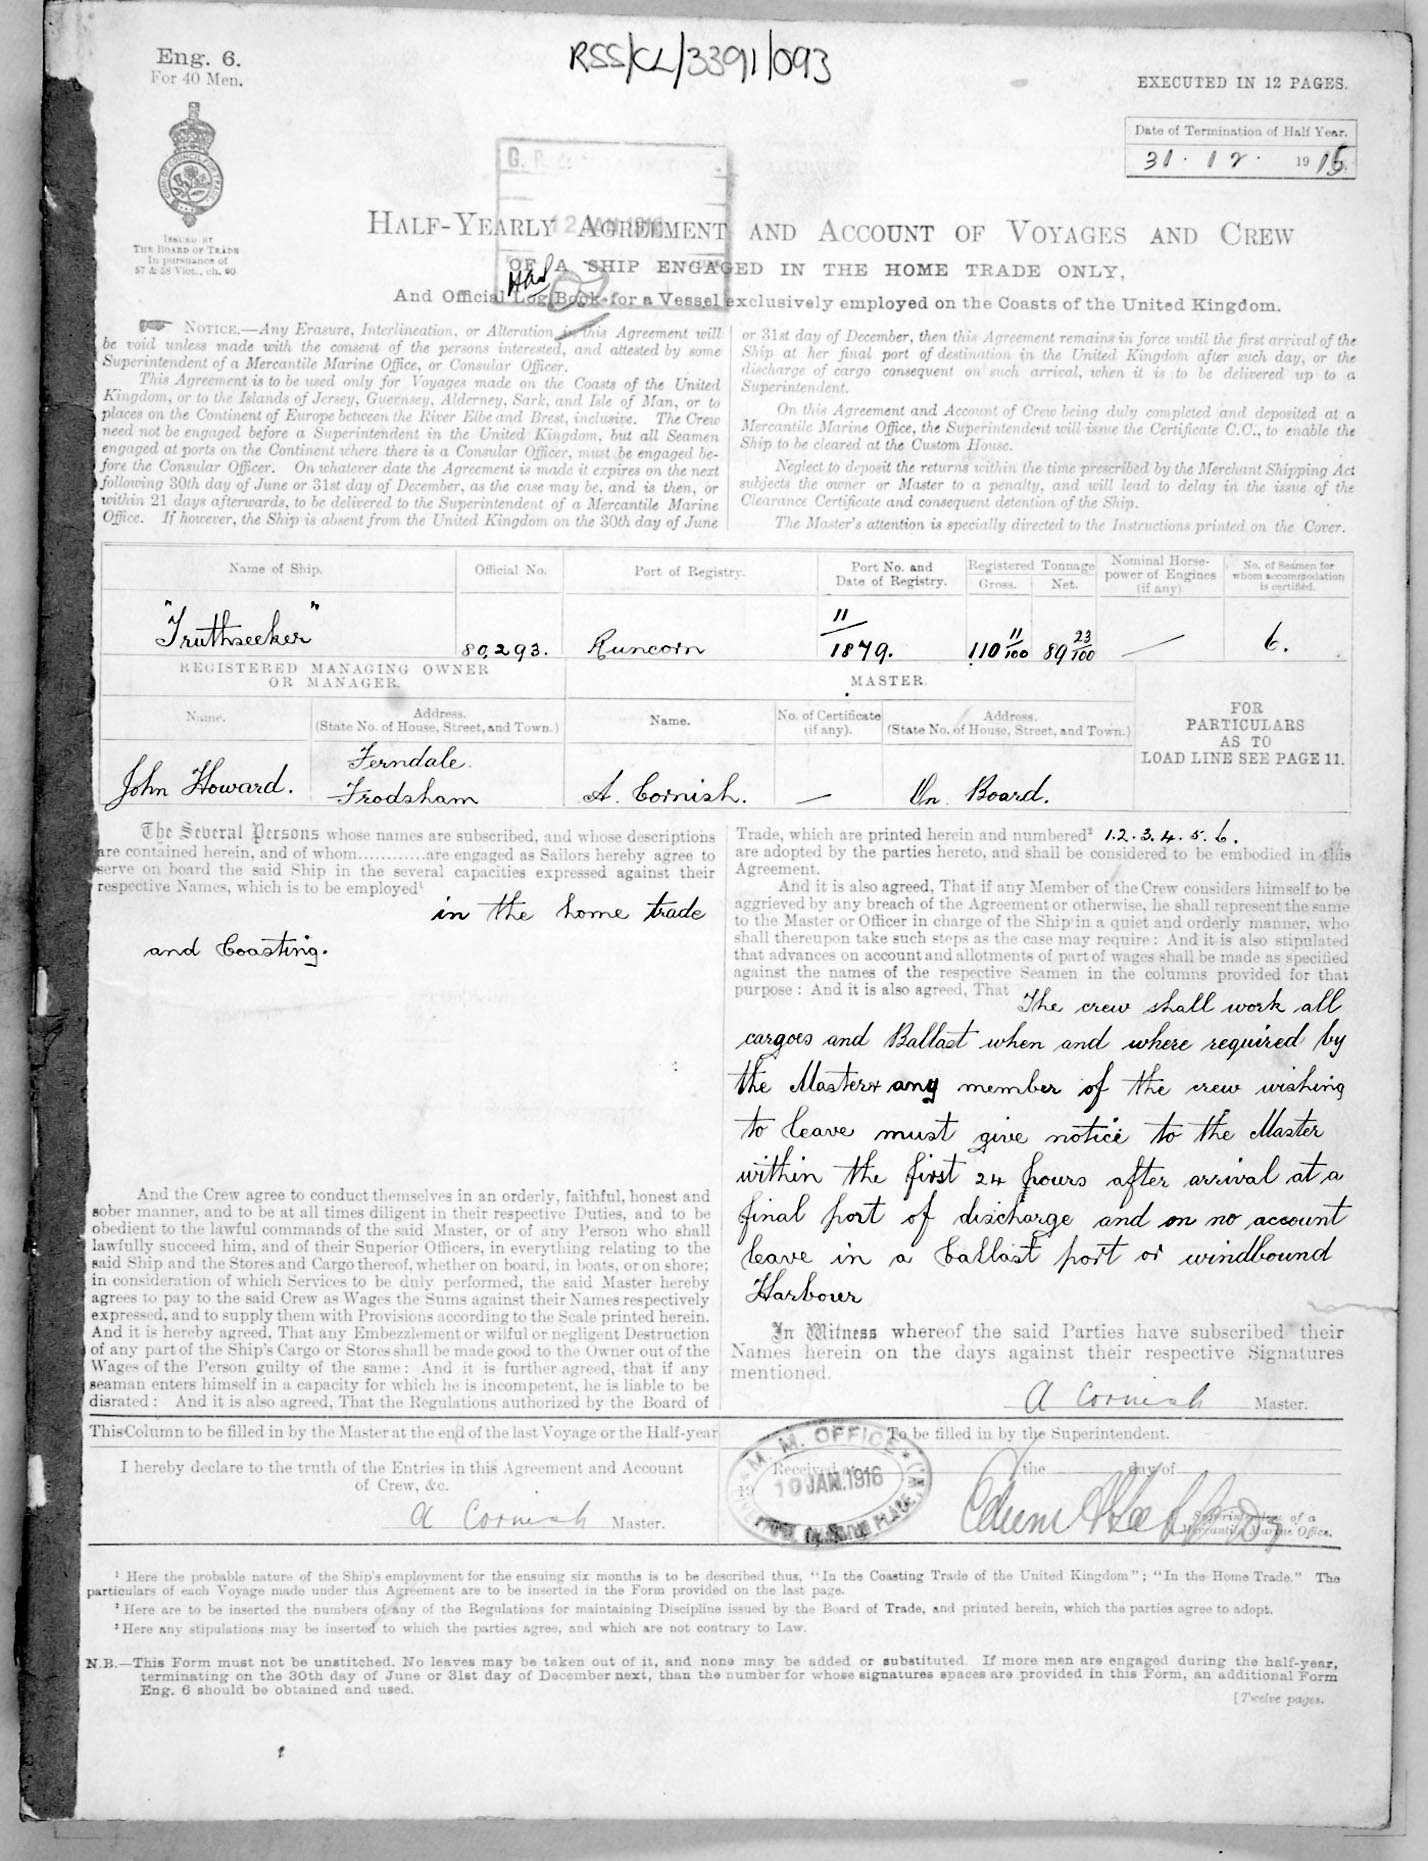 RSS/CL/3391/093
Eng. 6.
For 40 Men.
EXECUTED IN 12 PAGES.
Date of Termination of Half Year.
31 . 12 . 1915
ISSUED BY
THE BOARD OF TRADE
In pursuance of
57 & 58 Vict., ch. 60.
G. R.
12 JAN. 1916
HALF-YEARLY AGREEMENT AND ACCOUNT OF VOYAGES AND CREW
OF A SHIP ENGAGED IN THE HOME TRADE ONLY,
And Official Log Book for a Vessel exclusively employed on the Coasts of the United Kingdom.
NOTICE.—Any Erasure, Interlineation, or Alteration in this Agreement will
be void unless made with the consent of the persons interested, and attested by some
Superintendent of a Mercantile Marine Office, or Consular Officer.
This Agreement is to be used only for Voyages made on the Coasts of the United
Kingdom, or to the Islands of Jersey, Guernsey, Alderney, Sark, and Isle of Man, or to
places on the Continent of Europe between the River Elbe and Brest, inclusive. The Crew
need not be engaged before a Superintendent in the United Kingdom, but all Seamen
engaged at ports on the Continent where there is a Consular Officer, must be engaged be-
fore the Consular Officer. On whatever date the Agreement is made it expires on the next
following 30th day of June or 31st day of December, as the case may be, and is then, or
within 21 days afterwards, to be delivered to the Superintendent of a Mercantile Marine
Office. If however, the Ship is absent from the United Kingdom on the 30th day of June
or 31st day of December, then this Agreement remains in force until the first arrival of the
Ship at her final port of destination in the United Kingdom after such day, or the
discharge of cargo consequent on such arrival, when it is to be delivered up to a
Superintendent.
On this Agreement and Account of Crew being duly completed and deposited at a
Mercantile Marine Office, the Superintendent will issue the Certificate C.C., to enable the
Ship to be cleared at the Custom House.
Neglect to deposit the returns within the time prescribed by the Merchant Shipping Act
subjects the owner or Master to a penalty, and will lead to delay in the issue of the
Clearance Certificate and consequent detention of the Ship.
The Master's attention is specially directed to the Instructions printed on the Cover.
Name of Ship.
Official No.
Port of Registry.
Port No. and
Date of Registry.
Registered Tonnage
Gross. Net.
Nominal Horse-
power of Engines
(if any)
No. of Seamen for
whom accommodation
is certified.
"Truthseeker"
80,293.
Runcorn
11
1879.
110 11/100
89 23/100
—
6.
REGISTERED MANAGING OWNER
OR MANAGER.
MASTER.
Name.
Address.
(State No. of House, Street, and Town.)
Name.
No. of Certificate
(if any).
Address.
(State No. of House, Street, and Town.)
FOR
PARTICULARS
AS TO
LOAD LINE SEE PAGE 11.
John Howard.
Ferndale.
Frodsham
A. Cornish.
—
On Board.
The Several Persons whose names are subscribed, and whose descriptions
are contained herein, and of whom............are engaged as Sailors hereby agree to
serve on board the said Ship in the several capacities expressed against their
respective Names, which is to be employed¹
in the home trade
and Coasting.
And the Crew agree to conduct themselves in an orderly, faithful, honest and
sober manner, and to be at all times diligent in their respective Duties, and to be
obedient to the lawful commands of the said Master, or of any Person who shall
lawfully succeed him, and of their Superior Officers, in everything relating to the
said Ship and the Stores and Cargo thereof, whether on board, in boats, or on shore;
in consideration of which Services to be duly performed, the said Master hereby
agrees to pay to the said Crew as Wages the Sums against their Names respectively
expressed, and to supply them with Provisions according to the Scale printed herein.
And it is hereby agreed, That any Embezzlement or wilful or negligent Destruction
of any part of the Ship's Cargo or Stores shall be made good to the Owner out of the
Wages of the Person guilty of the same: And it is further agreed, that if any
seaman enters himself in a capacity for which he is incompetent, he is liable to be
disrated: And it is also agreed, That the Regulations authorized by the Board of
Trade, which are printed herein and numbered² 1. 2. 3. 4. 5. 6.
are adopted by the parties hereto, and shall be considered to be embodied in this
Agreement.
And it is also agreed, That if any Member of the Crew considers himself to be
aggrieved by any breach of the Agreement or otherwise, he shall represent the same
to the Master or Officer in charge of the Ship in a quiet and orderly manner, who
shall thereupon take such steps as the case may require: And it is also stipulated
that advances on account and allotments of part of wages shall be made as specified
against the names of the respective Seamen in the columns provided for that
purpose: And it is also agreed, That The crew shall work all
cargoes and Ballast when and where required by
the Master & any member of the crew wishing
to leave must give notice to the Master
within the first 24 hours after arrival at a
final port of discharge and on no account
leave in a ballast port or windbound
Harbour
In Witness whereof the said Parties have subscribed their
Names herein on the days against their respective Signatures
mentioned.
A Cornish Master.
This Column to be filled in by the Master at the end of the last Voyage or the Half-year
I hereby declare to the truth of the Entries in this Agreement and Account
of Crew, &c.
A Cornish Master.
To be filled in by the Superintendent.
Received at the day of
19
M. M. OFFICE
10 JAN. 1916
Superintendent of a
Mercantile Marine Office.
¹ Here the probable nature of the Ship's employment for the ensuing six months is to be described thus, "In the Coasting Trade of the United Kingdom"; "In the Home Trade." The
particulars of each Voyage made under this Agreement are to be inserted in the Form provided on the last page.
² Here are to be inserted the numbers of any of the Regulations for maintaining Discipline issued by the Board of Trade, and printed herein, which the parties agree to adopt.
³ Here any stipulations may be inserted to which the parties agree, and which are not contrary to Law.
N.B.—This Form must not be unstitched. No leaves may be taken out of it, and none may be added or substituted. If more men are engaged during the half-year,
terminating on the 30th day of June or 31st day of December next, than the number for whose signatures spaces are provided in this Form, an additional Form
Eng. 6 should be obtained and used.
[Twelve pages.